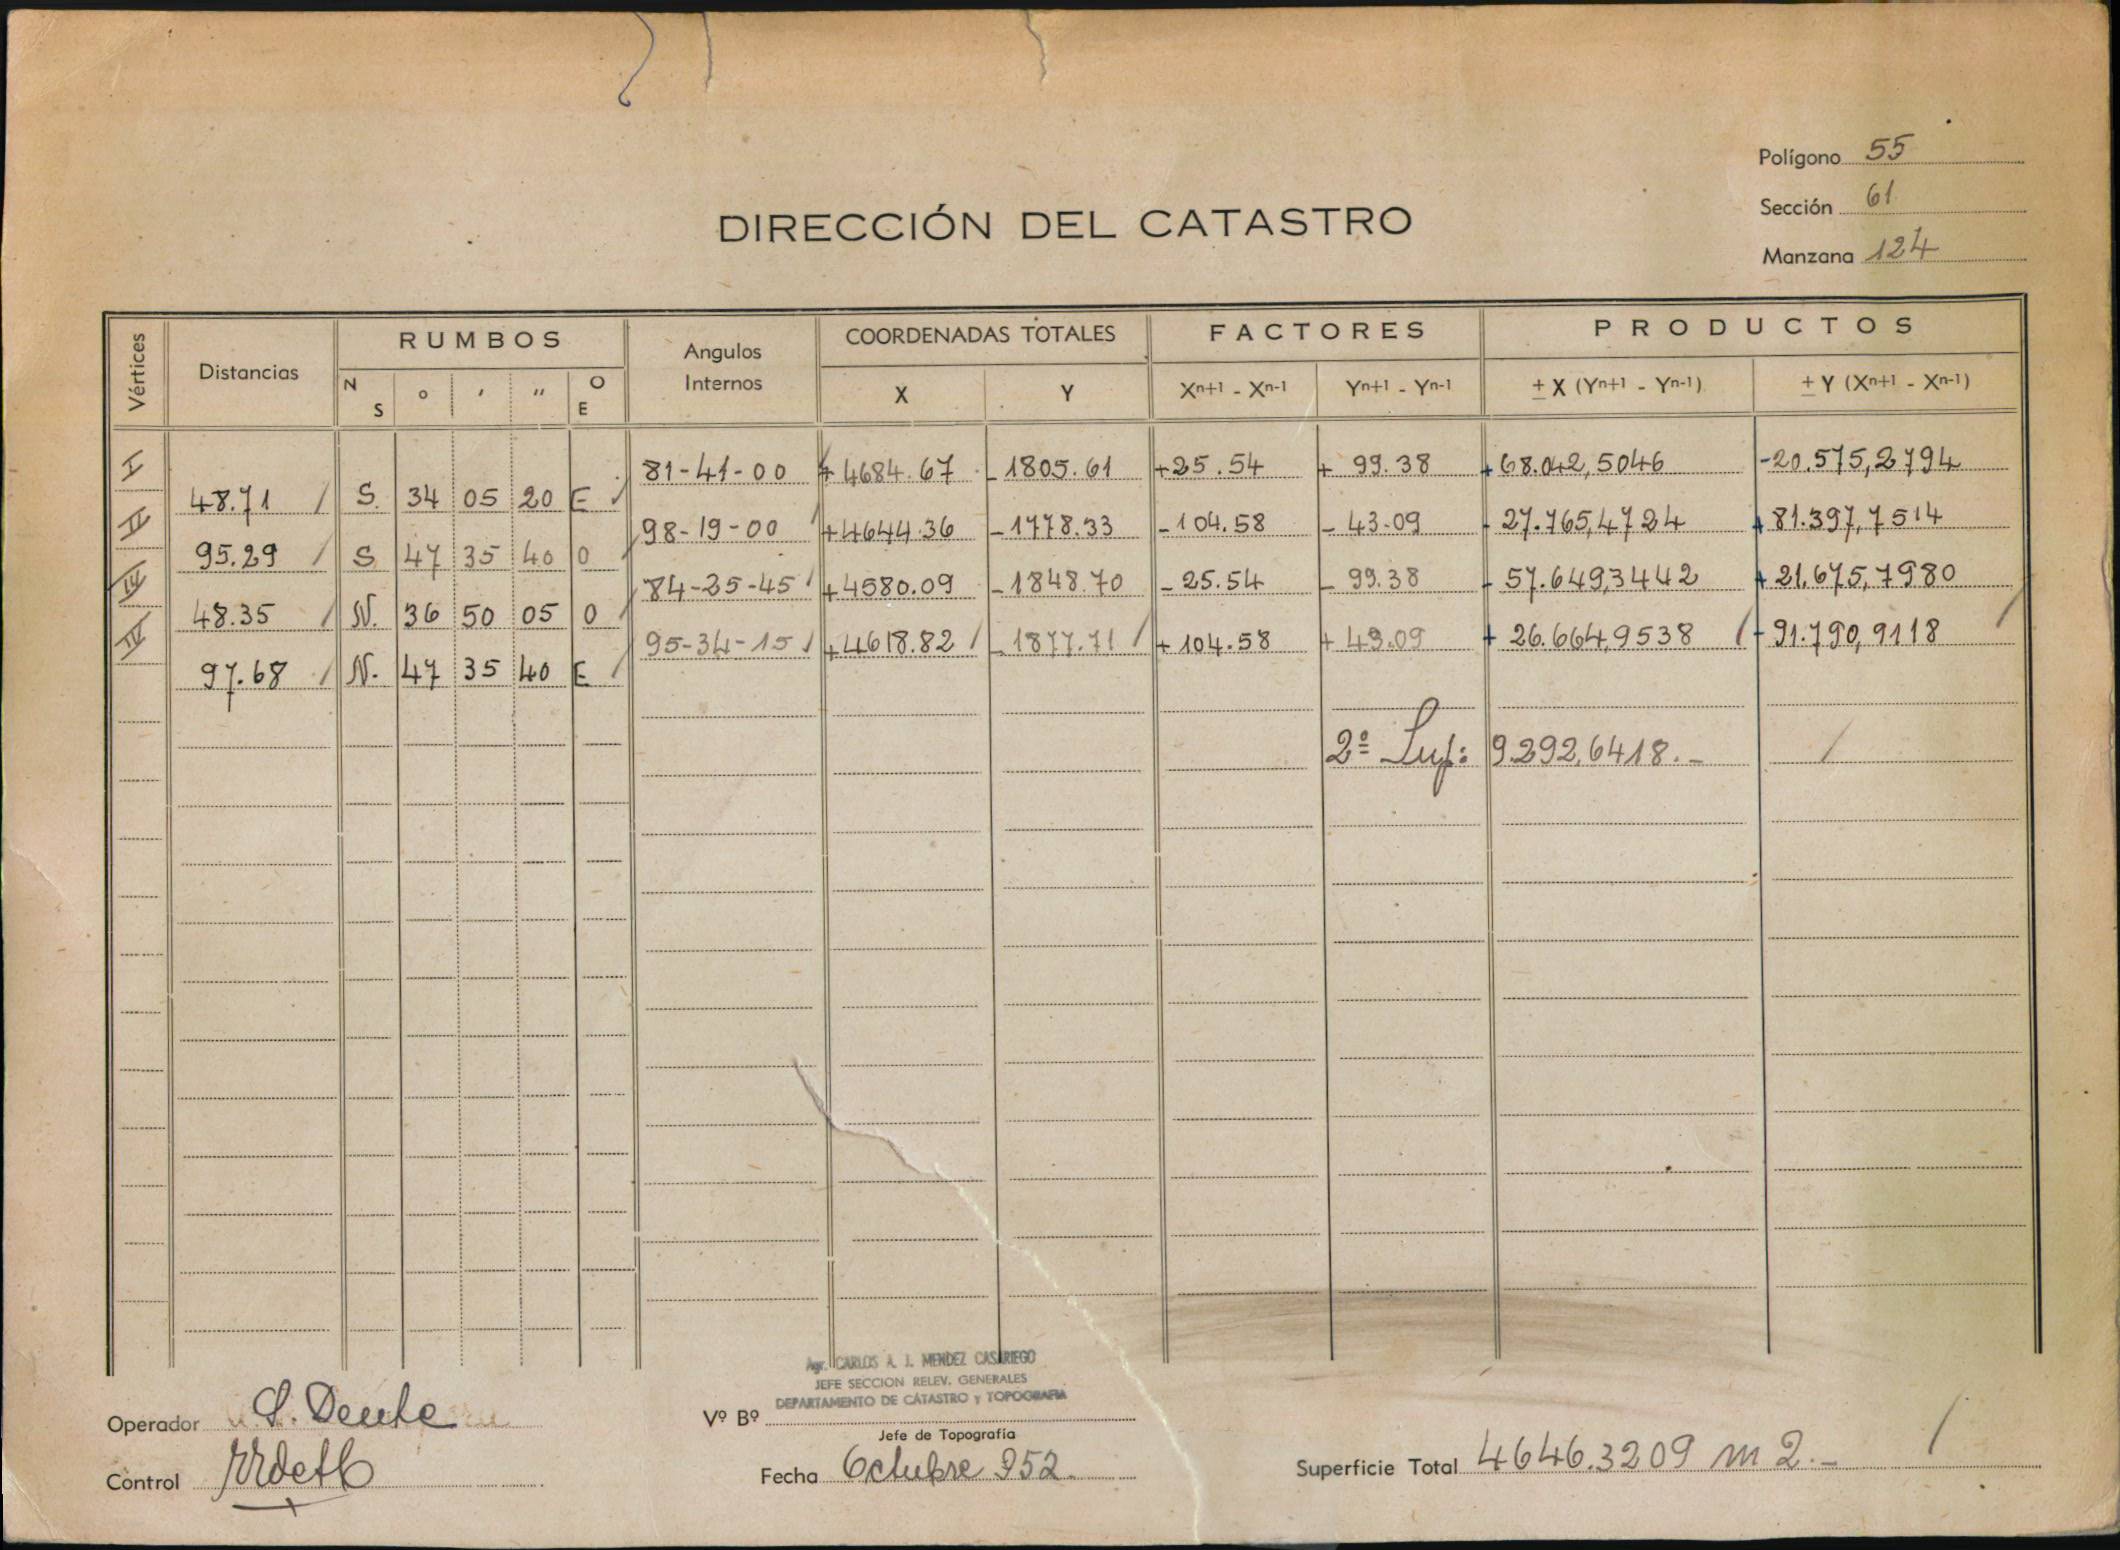 Polígono 55
Sección 61
Manzana 124
DIRECCIÓN DEL CATASTRO
Vértices Distancias RUMBOS Angulos Internos COORDENADAS TOTALES FACTORES PRODUCTOS
N S ° ' " O E X Y Xn+1 - Xn-1 Yn+1 - Yn-1 ± X (Yn+1 - Yn-1) ± Y (Xn+1 - Xn-1)
I 81-41-00 +4684.67 -1805.61 +25.54 + 99.38 +68.042,5046 -20.575,2794
48.71 S. 34 05 20 E
II 98-19-00 +4644.36 -1778.33 -104.58 - 43.09 - 27.765,4724 +81.397,7514
95.29 S 47 35 40 O
III 84-25-45 +4580.09 -1848.70 - 25.54 - 99.38 - 57.649,3442 +21.675,7980
48.35 N. 36 50 05 O
IV 95-34-15 +4618.82 -1877.71 + 104.58 + 43.09 + 26.664,9538 -91.790,9118
97.68 N. 47 35 40 E
2º Sup: 9.292,6418.-
Agr. CARLOS A. J. MENDEZ CASARIEGO
JEFE SECCION RELEV. GENERALES
DEPARTAMENTO DE CATASTRO y TOPOGRAFIA
Operador S. Deuhe
Vº Bº
Jefe de Topografía
Control
Fecha Octubre 952.
Superficie Total 4646.3209 m2.-